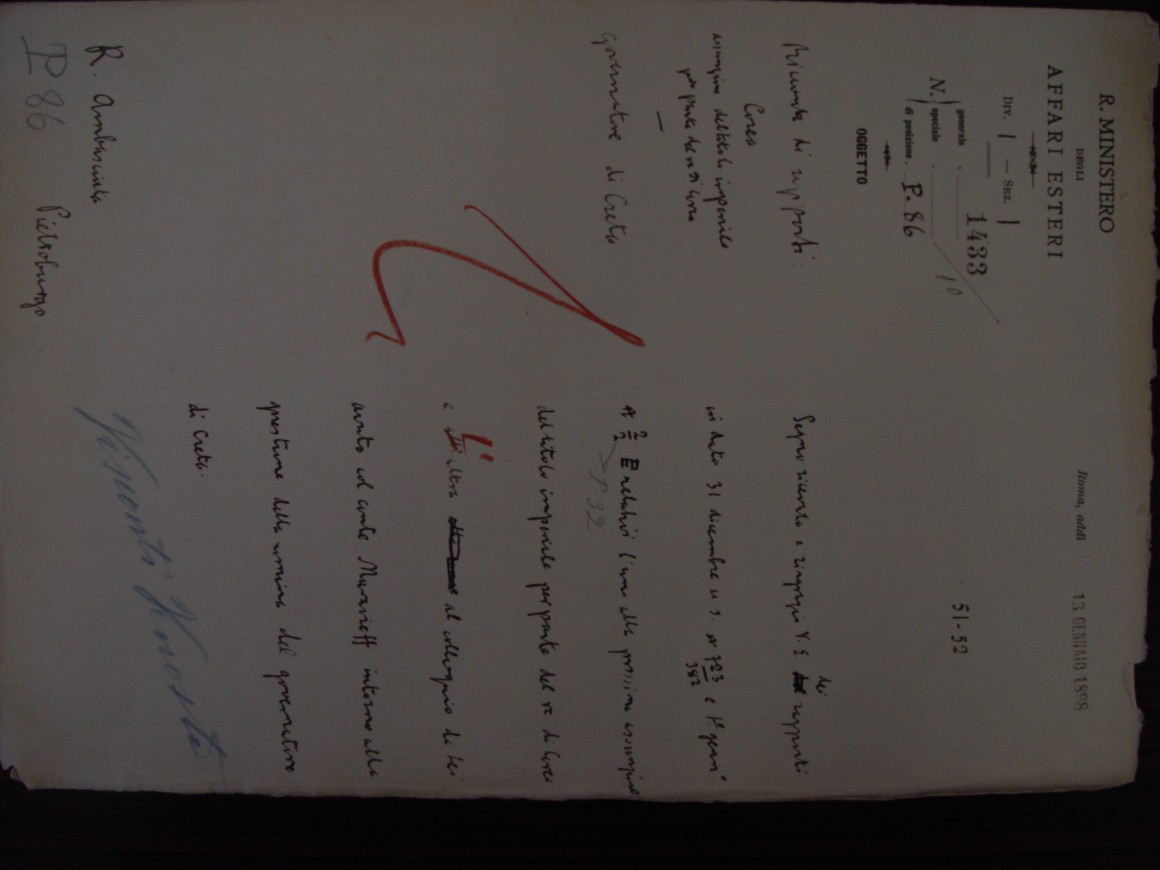 R. MINISTERO
DEGLI
AFFARI ESTERI
Div. I – Sez. I
N. generale 1433/10
speciale
di posizione P. 86
OGGETTO
Ricevuta di rapporti:
Corea
assunzione del titolo imperiale
per parte del re di Corea
Governatore di Creta
R. Ambasciata
Pietroburgo
P 86
Roma, addì 13 GENNAIO 1898
51-52
Segno ricevuta e ringrazio V. E. dei rapporti
in data 31 dicembre u. s. n° 723/382 e 1° genn°
n° 2/2 relativi l'uno alla prossima assunzione
P 32
del titolo imperiale per parte del re di Corea
e l'altro al colloquio da Lei
avuto col conte Muravieff intorno alla
questione della nomina del governatore
di Creta.
Visconti Venosta